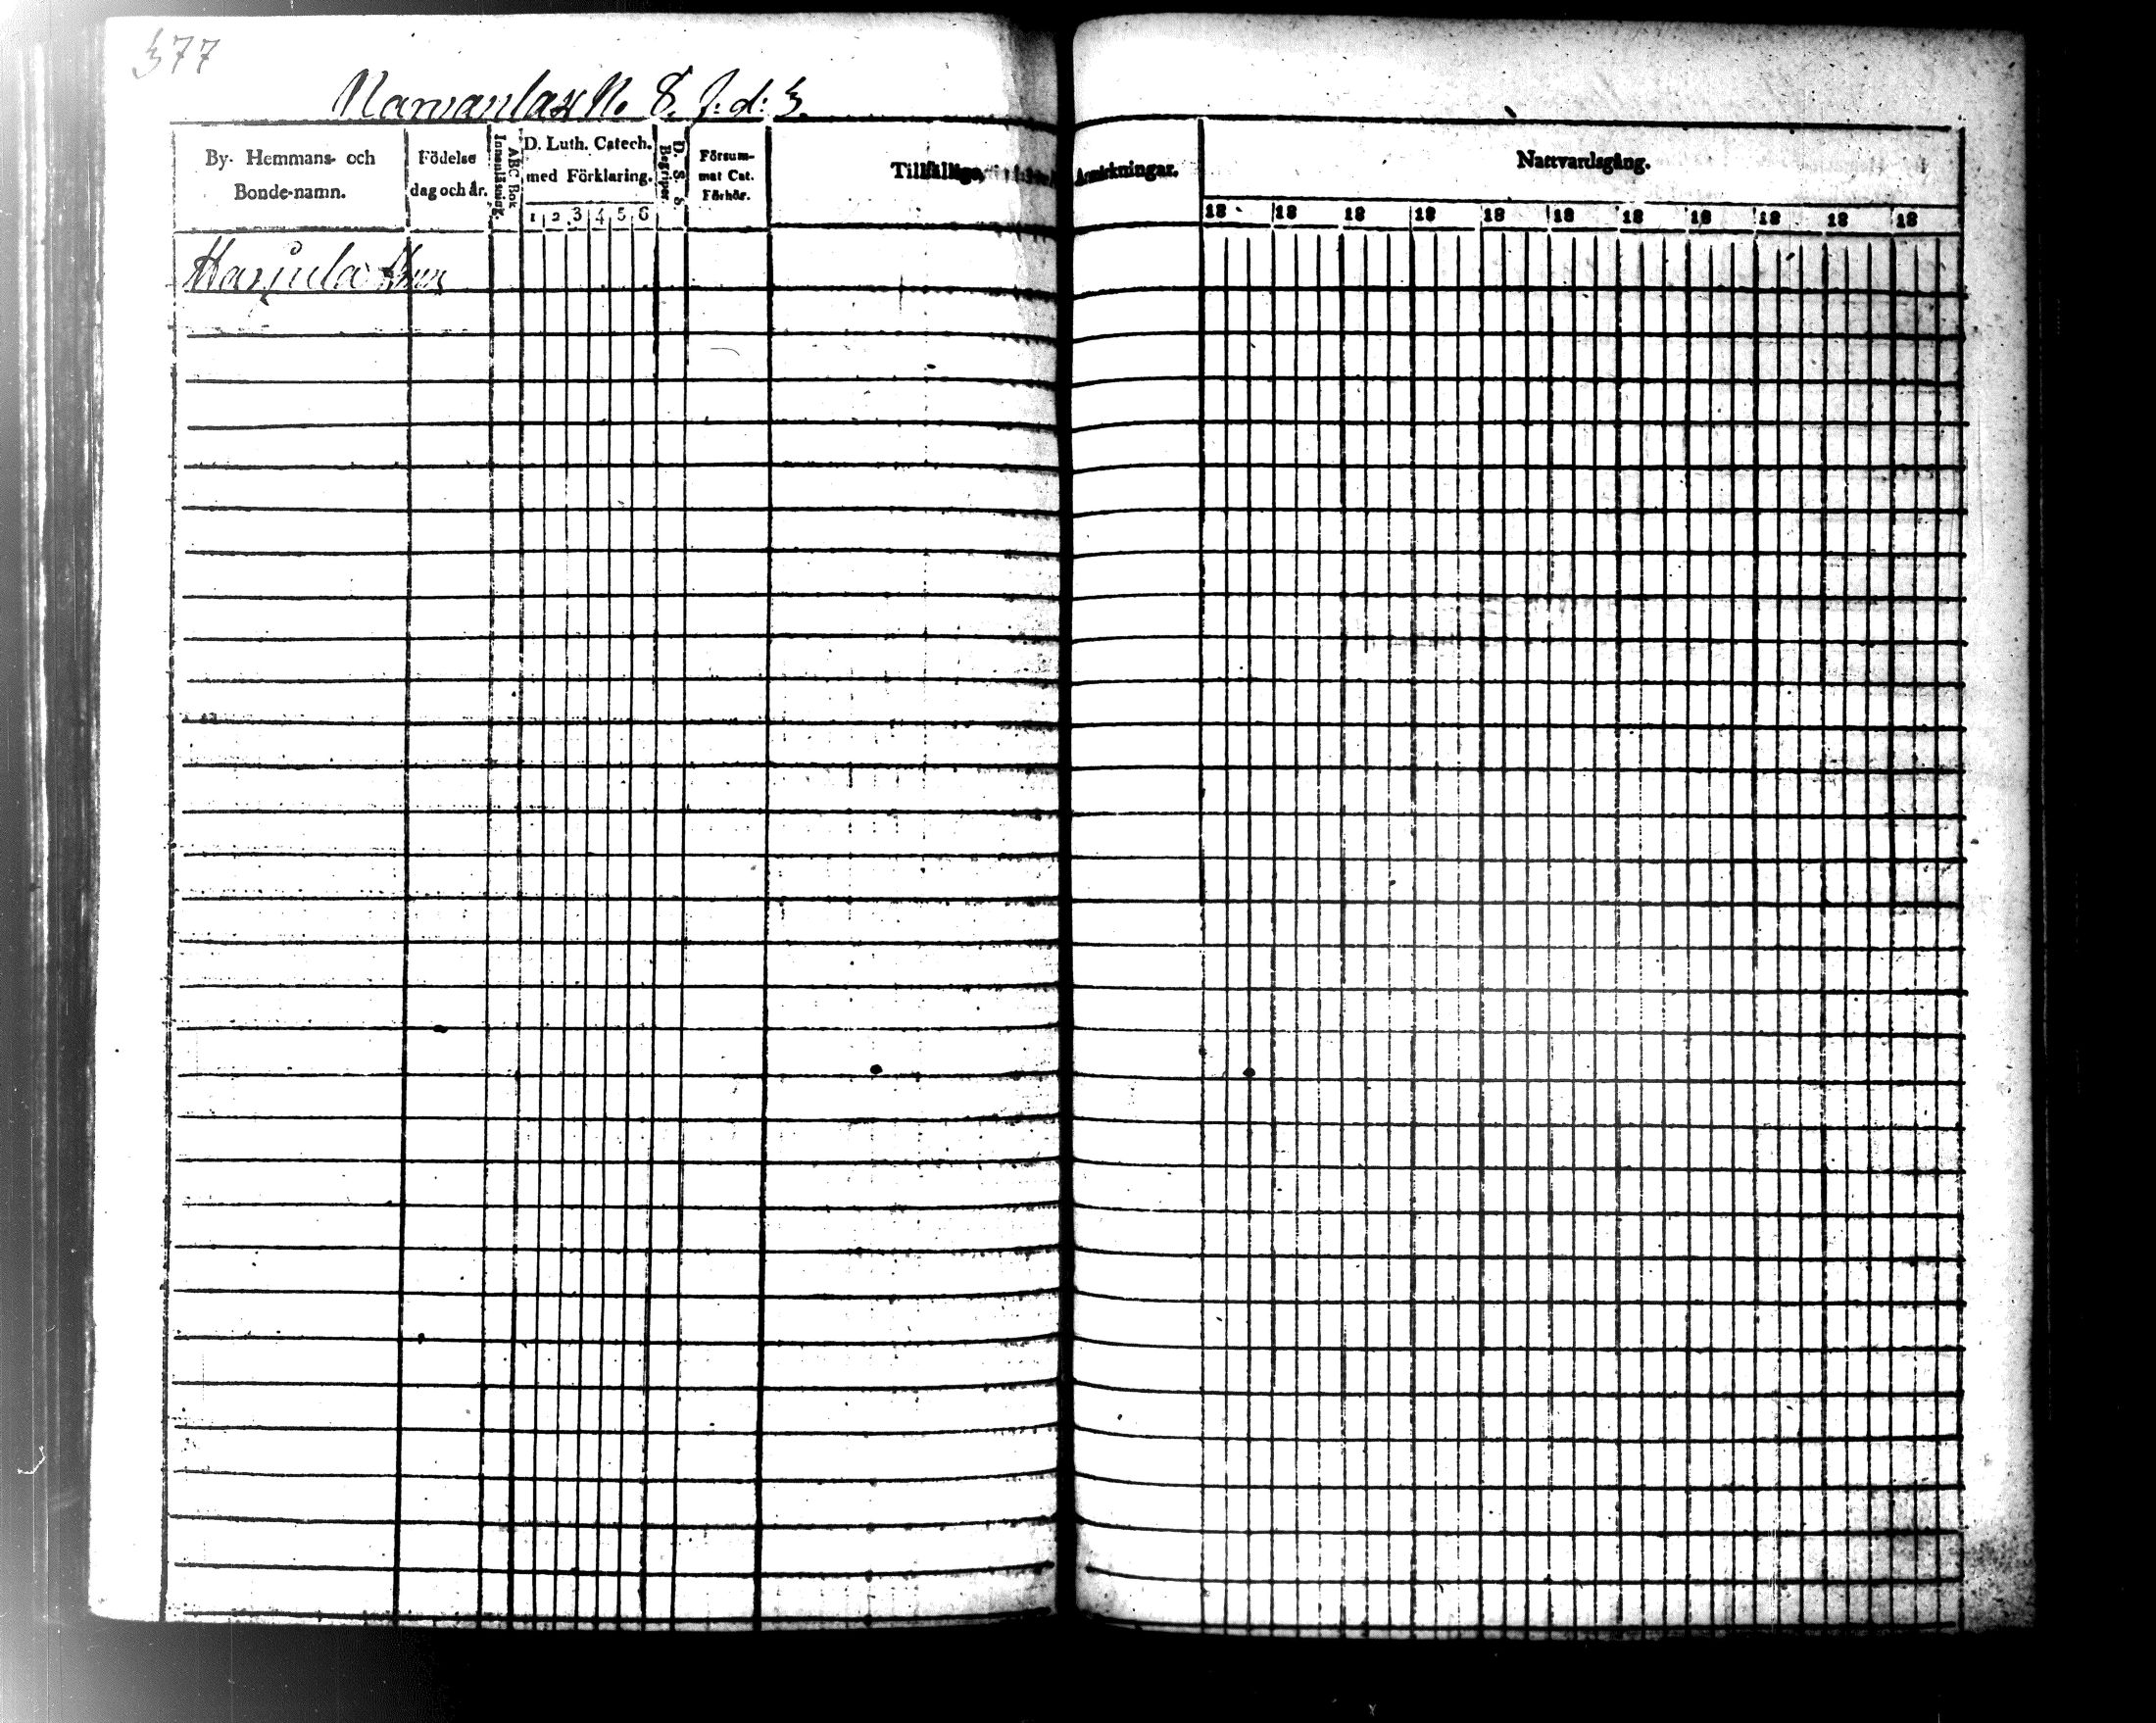 377
N. 8. f: d: 3.
By- Hemmans- och
Bonde-namn.
Födelse
dag och år.
Innanläsning.
ABC Bok
D. Luth. Catech.
med Förklaring.
1 2 3 4 5 6
D. S. S.
Begriper.
Försum-
mat Cat.
Förhör.
Tillfällige Anmärkningar.
Nattvardsgång.
18 18 18 18 18 18 18 18 18 18 18
Harjula